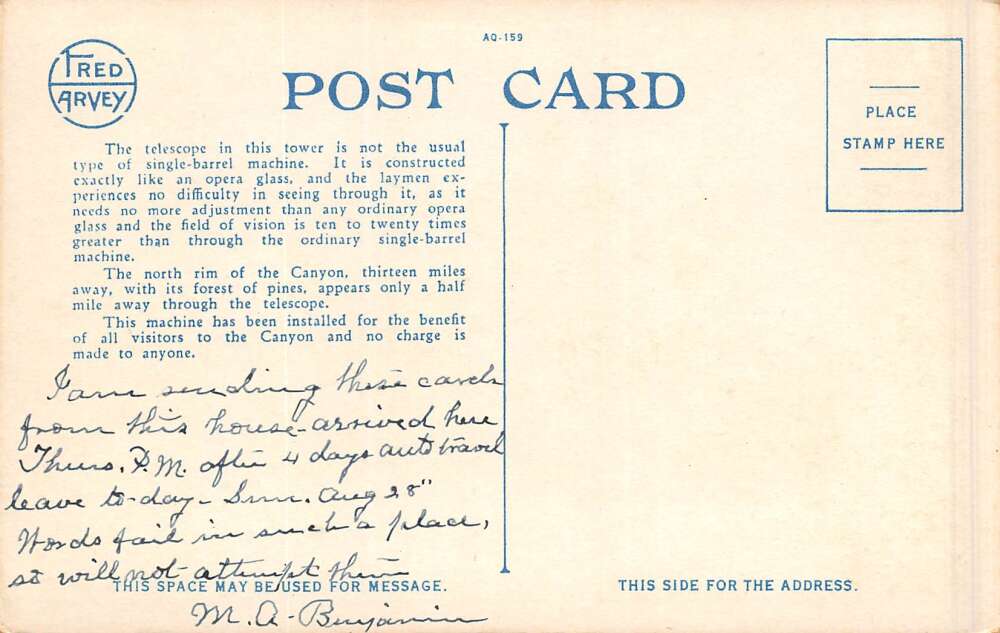 AQ-159
FRED
HARVEY
POST CARD
PLACE
STAMP HERE
The telescope in this tower is not the usual
type of single-barrel machine. It is constructed
exactly like an opera glass, and the laymen ex-
periences no difficulty in seeing through it, as it
needs no more adjustment than any ordinary opera
glass and the field of vision is ten to twenty times
greater than through the ordinary single-barrel
machine.
The north rim of the Canyon, thirteen miles
away, with its forest of pines, appears only a half
mile away through the telescope.
This machine has been installed for the benefit
of all visitors to the Canyon and no charge is
made to anyone.
I am sending these cards
from this house - arrived here
Thurs. P.M. after 4 days auto travel
leave to-day - Sun. Aug 28"
Words fail in such a place,
so will not attempt them
THIS SPACE MAY BE USED FOR MESSAGE.
M. A. Benjamin
THIS SIDE FOR THE ADDRESS.